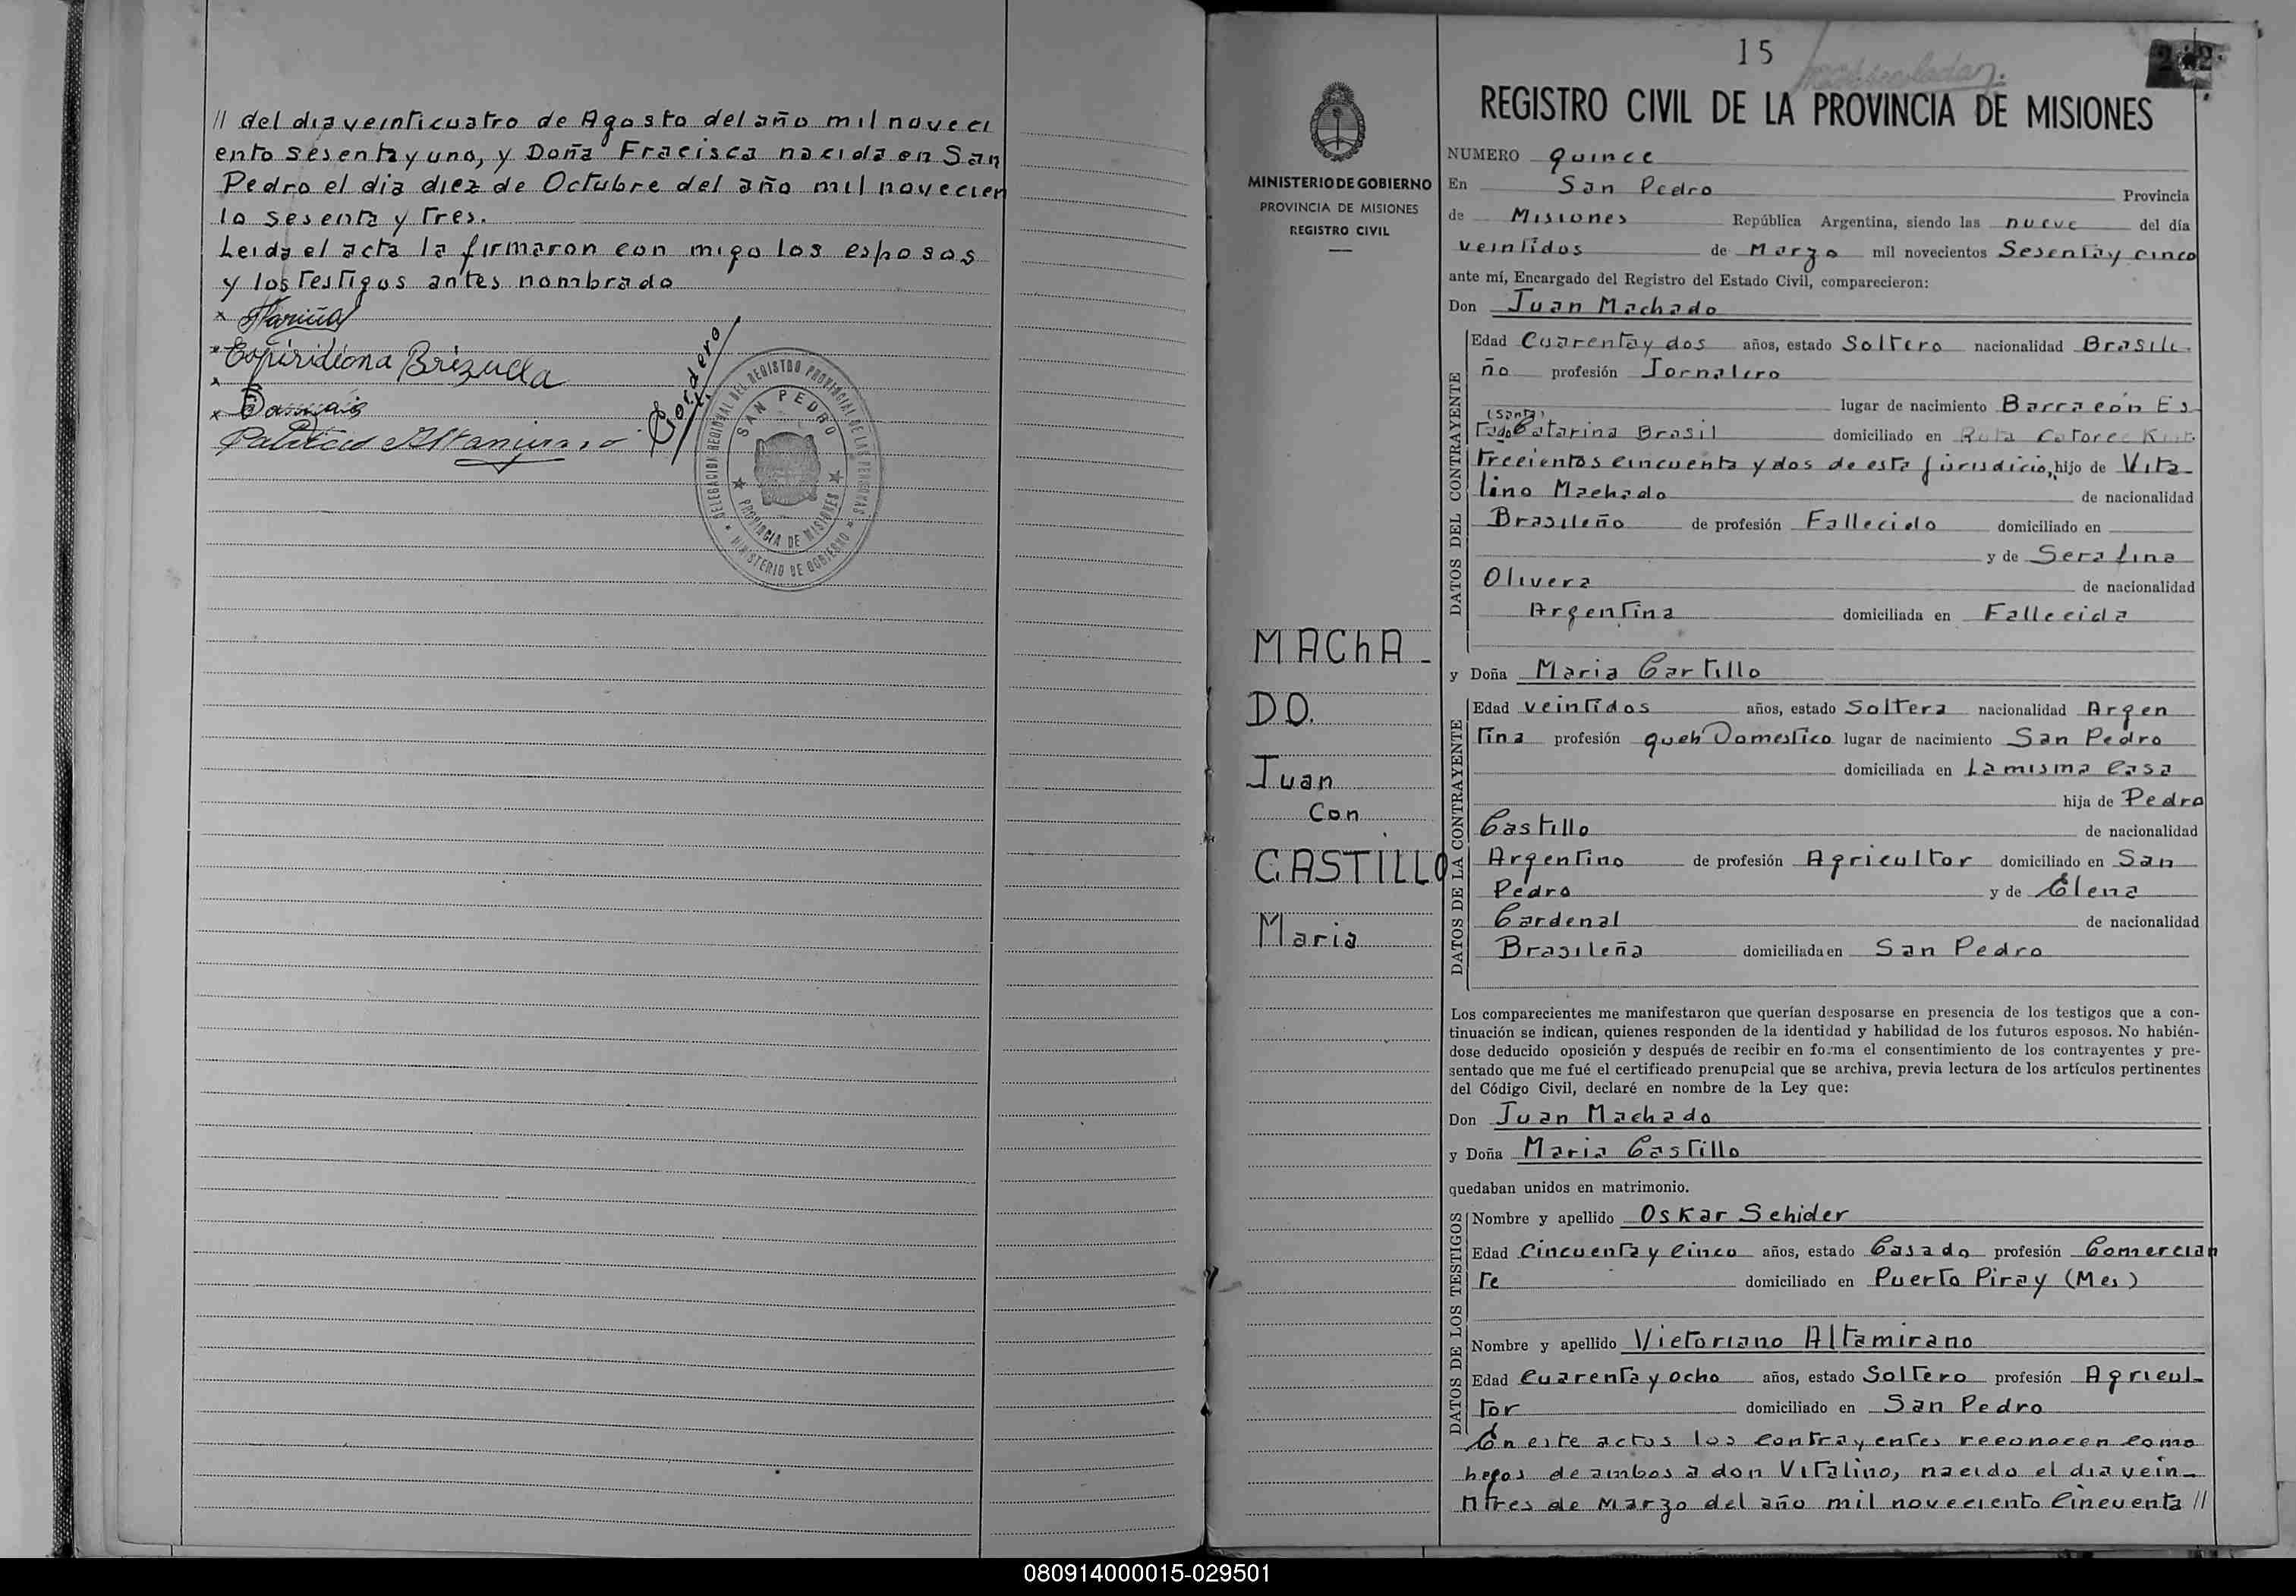 // del dia veinticuatro de Agosto del año mil noveci
ento sesenta y uno, y Doña Fracisca nacida en San
Pedro el dia diez de Octubre del año mil novecien
to sesenta y tres.
Leida el acta la firmaron con migo los esposos
y los testigos antes nombrado
x
x Espiridiona Brizuela
x
x
Cordero
DELEGACION REGIONAL DEL REGISTRO PROVINCIAL DE LAS PERSONAS
SAN PEDRO
PROVINCIA DE MISIONES
MINISTERIO DE GOBIERNO
MINISTERIO DE GOBIERNO
PROVINCIA DE MISIONES
REGISTRO CIVIL
MAChA-
DO.
Juan
Con
CASTILLO
Maria
15
REGISTRO CIVIL DE LA PROVINCIA DE MISIONES
NUMERO quince
En San Pedro Provincia
de Misiones República Argentina, siendo las nueve del día
veintidos de Marzo mil novecientos Sesenta y cinco
ante mí, Encargado del Registro del Estado Civil, comparecieron:
Don Juan Machado
DATOS DEL CONTRAYENTE
Edad Cuarenta y dos años, estado Soltero nacionalidad Brasile
ño profesión Jornalero
lugar de nacimiento Barracón Es
(Santa)
tado Catarina Brasil domiciliado en Ruta Catorce Km
trecientos cincuenta y dos de esta jurisdicio, hijo de Vita-
lino Machado de nacionalidad
Brasileño de profesión Fallecido domiciliado en
y de Serafina
Olivera de nacionalidad
Argentina domiciliada en Fallecida
y Doña Maria Cartillo
DATOS DE LA CONTRAYENTE
Edad veintidos años, estado Soltera nacionalidad Argen
tina profesión queh Domestico lugar de nacimiento San Pedro
domiciliada en La misma casa
hija de Pedro
Castillo de nacionalidad
Argentino de profesión Agricultor domiciliado en San
Pedro y de Elena
Cardenal de nacionalidad
Brasileña domiciliada en San Pedro
Los comparecientes me manifestaron que querían desposarse en presencia de los testigos que a con-
tinuación se indican, quienes responden de la identidad y habilidad de los futuros esposos. No habién-
dose deducido oposición y después de recibir en forma el consentimiento de los contrayentes y pre-
sentado que me fué el certificado prenupcial que se archiva, previa lectura de los artículos pertinentes
del Código Civil, declaré en nombre de la Ley que:
Don Juan Machado
y Doña Maria Castillo
quedaban unidos en matrimonio.
DATOS DE LOS TESTIGOS
Nombre y apellido Oskar Schider
Edad Cincuenta y cinco años, estado Casado profesión Comercian
te domiciliado en Puerto Piray (Mes)
Nombre y apellido Victoriano Altamirano
Edad Cuarenta y ocho años, estado Soltero profesión Agricul-
tor domiciliado en San Pedro
En este actos los contrayentes reconocen como
hegos de ambos a don Vitalino, nacido el dia vein-
titres de Marzo del año mil noveciento Cincuenta //
080914000015-029501